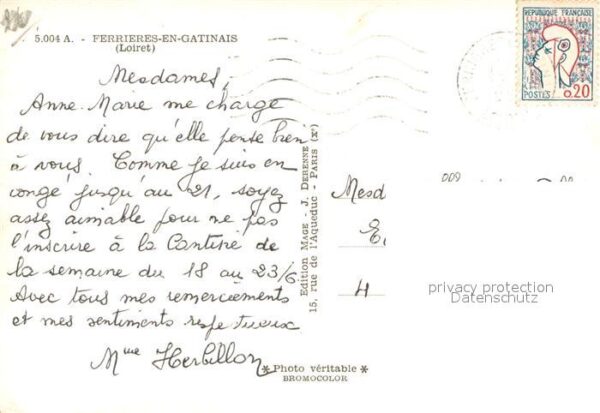 5.004 A. - FERRIERES-EN-GATINAIS
(Loiret)
Mesdames,
Anne-Marie me charge
de vous dire qu'elle pense bien
à vous. Comme je suis en
congé jusqu'au 21, soyez
assez aimable pour ne pas
l'inscrire à la Cantine de
la semaine du 18 au 23/6
Avec tous mes remerciements
et mes sentiments respectueux
Mme Herbillon
Edition MAGE - J. DERENNE
15, rue de l'Aqueduc - PARIS (Xe)
*Photo véritable*
BROMOCOLOR
REPUBLIQUE FRANÇAISE
POSTES 0,20
Mesd
E
H
privacy protection
Datenschutz